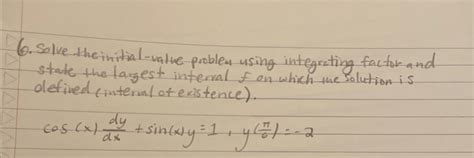 6. Solve the initial-value problem using integrating factor and
state the largest interval I on which the solution is
defined (interval of existence).
cos (x) dy/dx + sin(x) y = 1 , y(π/6) = -2